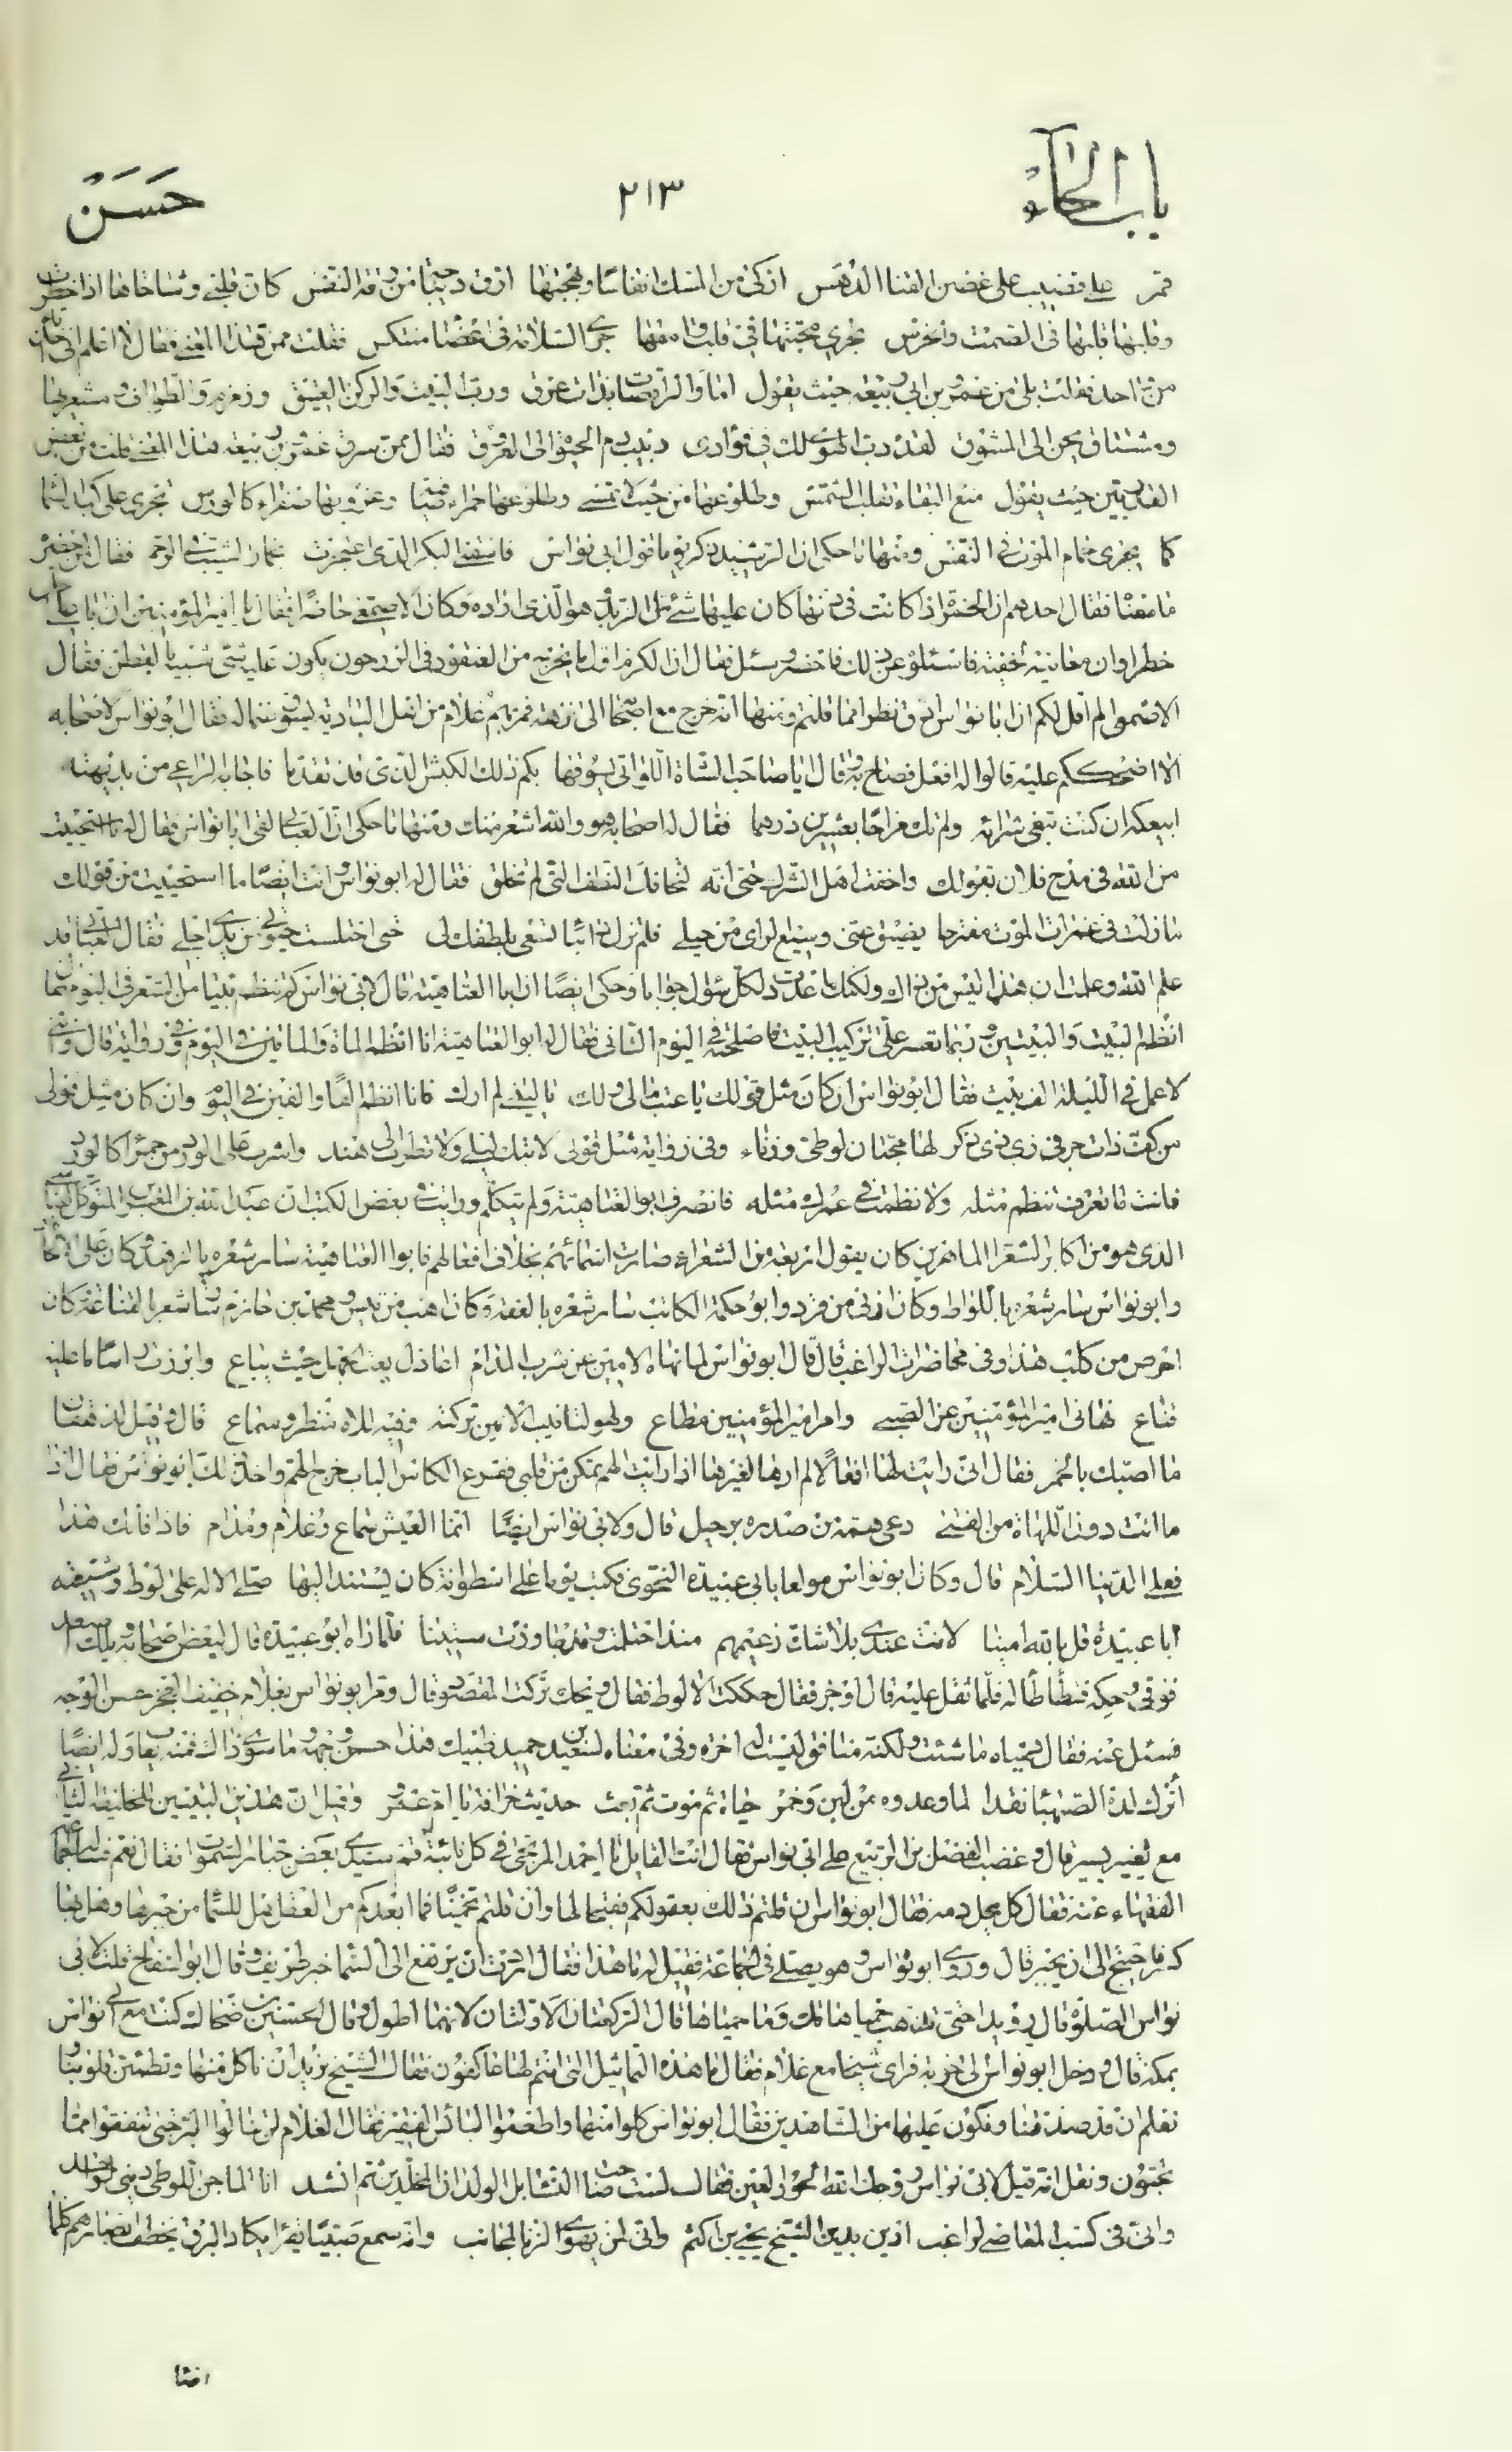 باب الحاء
٢١٣
حسن
قمر على قضيب على غصن النقا الدهس اذكى من المسك انفاسا وبهجتها ارق ديباجة من رقة النفس كان قلبي وشاحاها اذا خطرت
وقلبها قلبها في الصمت والخرس تجري محبتها في قلب وامقها جرى السلامة في اعضاء منتكس فقلت ممن سرقت هذا المعنى فقال لا اعلم اني اخذته
من احد فقلت بلى من عمر بن ابي ربيعة حيث يقول اما والراقصات بذات عرق ورب البيت والركن العتيق وزمزم والطواف ومشعريها
ومشتاق يحن الى المشوق لقد دب الهوى لك في فؤادي دبيب دم الحيوة الى العروق فقال ممن سرق عمر بن ربيعة هذا المعنى قلت من بعض
حيث يقول منع البقاء تقلب الشمس وطلوعها من حيث لا تمسي وطلوعها حمراء صافية وغروبها صفراء كالورس تجري على كبد السما
كما يجري حمام الموت في النفس ومنها ما حكى ان الرشيد ذكر يوما قول ابي نواس فاسقني البكر الذي اعتجرت بخمار الشيب في الرحم فقال لمن حضر
ما معناه فقال احدهم ان الخمر اذا كانت في دنها كان عليها شئ مثل الزبد هو الذي اراده وكان الاصمعي حاضرا فقال يا امير المؤمنين ان ابا علي
خطر وان معانيه لخفية فاسئلوه عن ذلك فاحضر وسئل فقال ان الكرم اول ما يخرج من العنقود في الزرجون يكون عليه شئ شبيه بالقطن فقال
الاصمعي الم اقل لكم ان ابا نواس ادق نظرا مما قلتم ومنها انه خرج مع اصحابه الى نزهة فمر بهم غلام من اهل البادية يسوق غنما له فقال ابونواس لاصحابه
الا اضحككم عليه قالوا له افعل فصاح به وقال ايا صاحب الشاة اللواتي يسوقها بكم ذلك الكبش الذي قد تقدما فاجابه الراعي من بديهته
ابيعكه ان كنت تبغي شرائه ولم تك مزاحا بعشرين درهما فقال له اصحابه هو والله اشعر منك ومنها ما حكى ان العتابي لقى ابا نواس فقال له اما استحييت
من الله في مدح فلان بقولك واخفت اهل الشرك حتى انه لتخافك النطف التي لم تخلق فقال له ابونواس وانت ايضا ما استحييت من قولك
ما زلت في غمرات الموت مطرحا يضيق عني وسيع الراى من حيلي فلم تزل دائبا تسعى بلطفك لي حتى اختلست حيوتي من يدي اجلي فقال العتابي قد
علم الله وعلمت ان هذا ليس من ذاك ولكنك اعددت لكل سؤال جوابا وحكى ايضا ان ابا العتاهية قال لابي نواس كم تنظم بيتا من الشعر في اليوم قال ربما
انظم البيت والبيتين وربما تعسر علي تركيب البيت فاصلحه في اليوم الثاني فقال له ابوالعتاهية انا انظم المأة والمأتين في اليوم وفي رواية قال واني
لاعمل في الليلة الف بيت فقال ابونواس ان كان مثل قولك يا عتب مالي ولك يا ليتني لم ارك فانا انظم الفا والفين في اليوم وان كان مثل قولي
من كف ذات حر في زي ذي ذكر لها محبان لوطي وزناء وفي رواية مثل قولي لا تبك ليلى ولا تطرب الى هند واشرب على الورد من حمراء كالورد
فانت ما تعرف تنظم مثله ولا نظمت في عمرك مثله فانصرف ابوالعتاهية ولم يتكلم ورايت في بعض الكتب ان عبدالله بن المعتز بن المتوكل العباسي
الذي هو من اكابر الشعراء الماهرين كان يقول اربعة من الشعراء صارت اسمائهم بخلاف افعالهم فابوالعتاهية سار شعره بالزهد وكان على الالحاد
وابونواس سار شعره باللواط وكان ازنى من قرد وابوحكيمة الكاتب سار شعره بالعنة وكان اهب من تيس ومحمد بن حازم سار شعره بالقناعة وكان
احرص من كلب هذا وفي محاضرات الراغب قال قال ابونواس لما نهاه الامين عن شرب المدام اعاذل بعت الجهل حيث يباع وابرزت راسا ما عليه
قناع نهاني امير المؤمنين عن الصبى وامر امير المؤمنين مطاع ولهو لتأنيب الامين تركته وفيه للاه منظر وسماع قال وقيل لدهقان
ما اصبك بالخمر فقال اني رايت لها افعالا لم ارها لغيرها اذا رايت الهم تمكن من قلبي فقرع الكاس الباب خرج الهم واخذ ذلك ابونواس فقال اذا
ما اتت دون اللهاة من الفتى دعى همه من صدره برحيل قال ولابي نواس ايضا انما العيش سماع وغلام ومدام فاذا فاتك هذا
فعلى الدنيا السلام قال وكان ابونواس مولعا بابي عبيدة النحوي فكتب يوما على اسطوانة كان يستند اليها صلى الاله على لوط وشيعته
ابا عبيدة قل بالله امينا لانت عندي بلا شك زعيمهم منذ احتلمت وقد جاوزت ستينا فلما راه ابوعبيدة قال لبعض اصحابه
فوقي وحكه فتطأطأ له فلما ثقل عليه قال اوجز فقال حككت الا لوط فقال ويحك تركت المقصد وقال ومر ابونواس بغلام خفيف العجز حسن الوجه
فسئل عنه فقال محياه ما شئت ولكنه منافق ليست له اخره وفي معناه لسعيد بن حميد ظبيك هذا حسن وجهه وما سوى ذاك فمنه يعاب وله ايضا
أترك لذة الصهباء نقدا لما وعدوه من لبن وخمر حياة ثم موت ثم بعث حديث خرافة يا ام عمرو وقيل ان هذين البيتين للخليفة الثاني
مع تغيير يسير قال وغضب الفضل بن الربيع على ابي نواس فقال انت القائل يا احمد المرتجى في كل نائبة قم سيدي نعص جبار السموات فقال نعم فسئل
الفقهاء عنه فقال كل بحل دمه فقال ابونواس ان قلتم ذلك بعقولكم فقبحا لها وان قلتم تخمينا فما ابعدكم من العقل هل للسماء من جبرها وهل بها
كسر فاحتيج الى ان يجبر قال وروى ابونواس وهو يصلي في الجماعة فقيل له ما هذا فقال اردت ان يرتفع الى السماء خبر طريف وقال ابوالشفاخ قلت لابي
نواس الصلوة قال رويدا حتى تذهب حمياها قلت وما حمياها قال الركعتان الاولتان لانهما اطول وقال الحسين بن ضحاك كنت مع ابي نواس
بمكة قال ودخل ابونواس الى خربة فراى شيخا مع غلام فقال ما هذه التماثيل التي انتم لها عاكفون فقال الشيخ نريد ان ناكل منها وتطمئن قلوبنا
ونعلم ان قد صدقتنا ونكون عليها من الشاهدين فقال ابونواس كلوا منها واطعموا البائس الفقير فقال الغلام لن تنالوا البر حتى تنفقوا مما
تحبون ونقل انه قيل لابي نواس زوجك الله الحور العين فقال لست صاحب النساء بل الولدان المخلدين ثم انشد انا الماجن اللوطي ديني واحد
واني في كسب المعاصي لراغب ادين بدين الشيخ يحيى بن اكثم واني لمن يهوى الزنا لمجانب وانه سمع صبيا يقرأ يكاد البرق يخطف ابصارهم كلما
اضاء